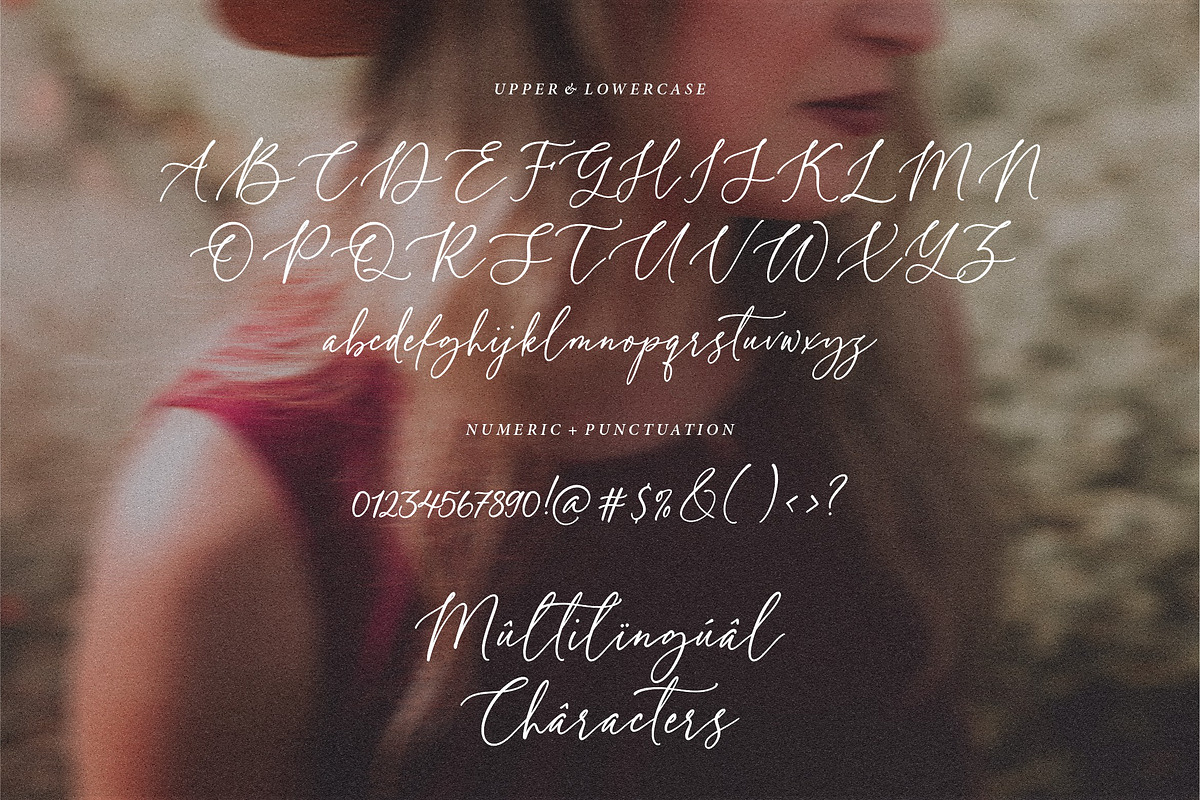 UPPER & LOWERCASE
ABCDEFGHIJKLMN
OPQRSTUVWXYZ
abcdefghijklmnopqrstuvwxyz
NUMERIC + PUNCTUATION
01234567890!@#$%&()<>?
Mûltilïngúâl
Châracters